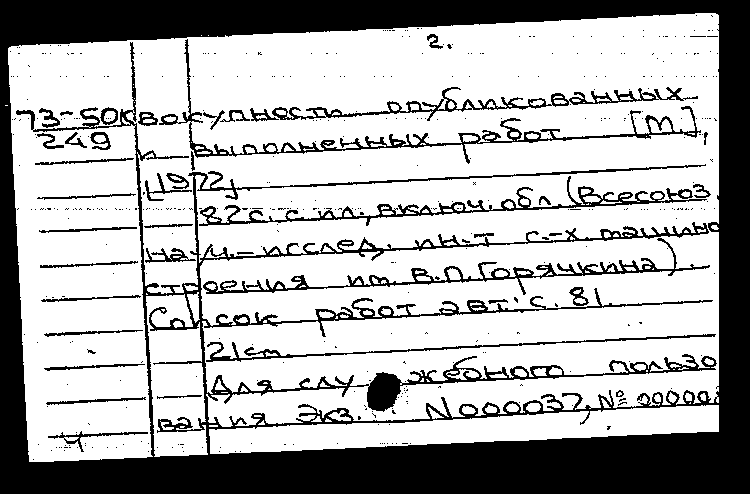 2.
73-50к вокупности опубликованных
249 и выполненных работ [М.],
[1972].
82 с. с ил., включ. обл. (Всесоюз.
науч.-исслед. ин-т с.-х. машино
строения им. В.П. Горячкина).
Список работ авт.: с. 81.
21 см.
Для служебного пользо
вания Экз. N000037, №
ч